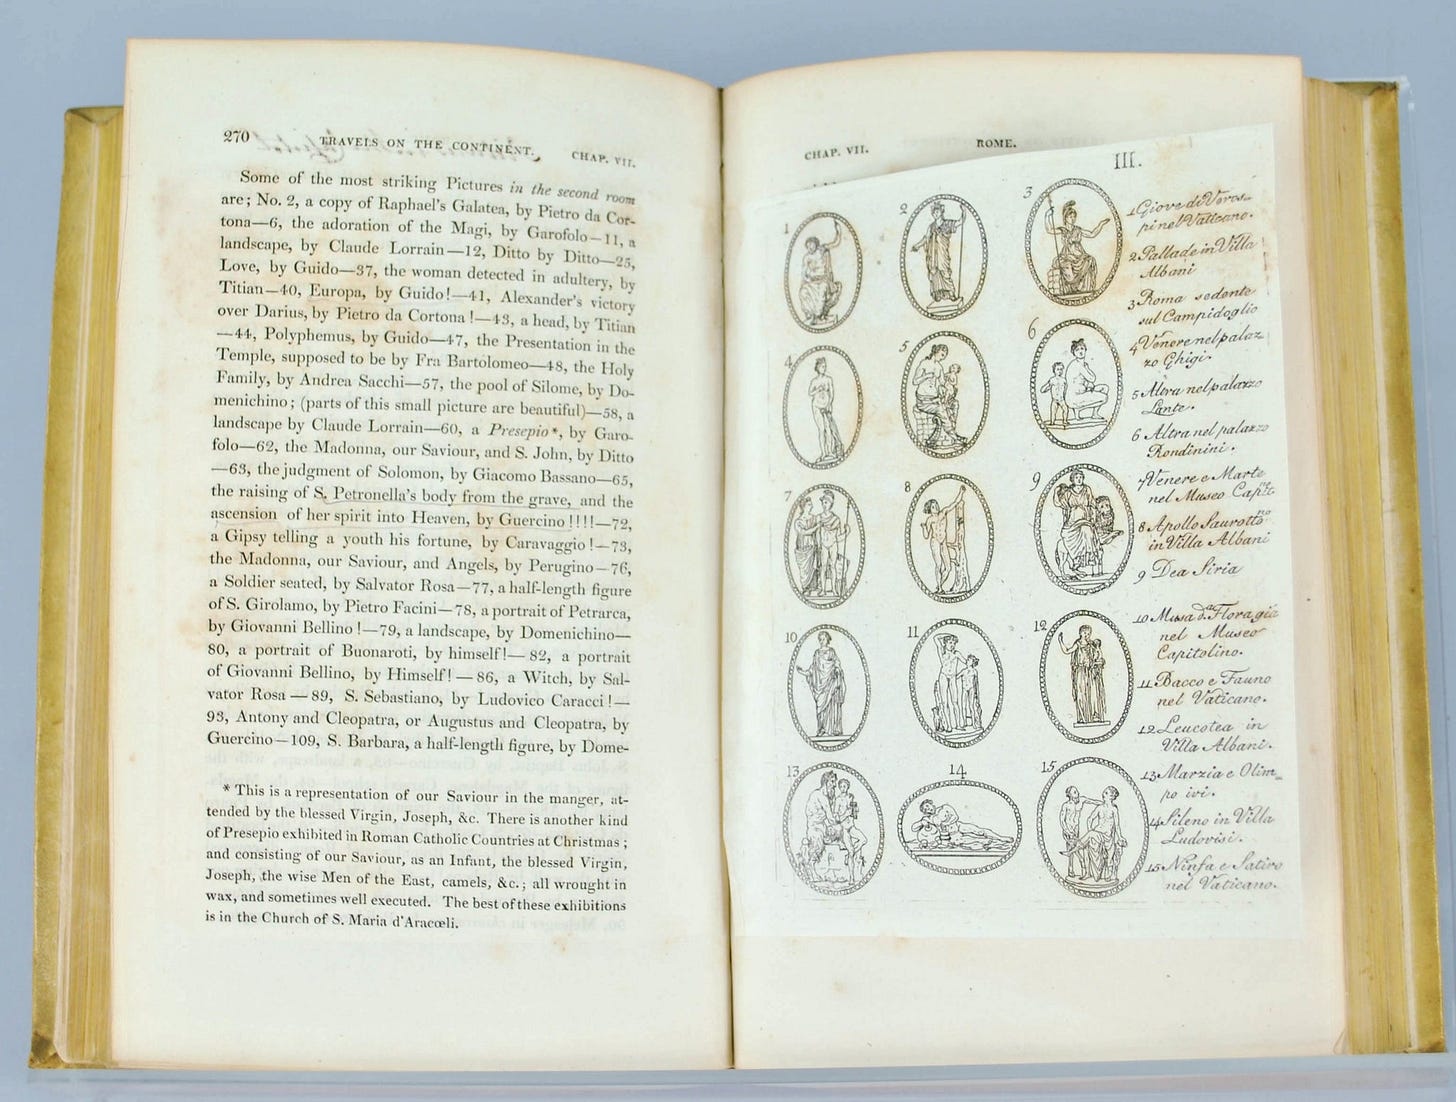 270
TRAVELS ON THE CONTINENT.
CHAP. VII.
Some of the most striking Pictures in the second room
are; No. 2, a copy of Raphael's Galatea, by Pietro da Cor-
tona—6, the adoration of the Magi, by Garofolo—11, a
landscape, by Claude Lorrain—12, Ditto by Ditto—25,
Love, by Guido—37, the woman detected in adultery, by
Titian—40, Europa, by Guido!—41, Alexander's victory
over Darius, by Pietro da Cortona!—43, a head, by Titian
—44, Polyphemus, by Guido—47, the Presentation in the
Temple, supposed to be by Fra Bartolomeo—48, the Holy
Family, by Andrea Sacchi—57, the pool of Silome, by Do-
menichino; (parts of this small picture are beautiful)—58, a
landscape by Claude Lorrain—60, a Presepio*, by Garo-
folo—62, the Madonna, our Saviour, and S. John, by Ditto
—63, the judgment of Solomon, by Giacomo Bassano—65,
the raising of S. Petronella's body from the grave, and the
ascension of her spirit into Heaven, by Guercino!!!!—72,
a Gipsy telling a youth his fortune, by Caravaggio!—73,
the Madonna, our Saviour, and Angels, by Perugino—76,
a Soldier seated, by Salvator Rosa—77, a half-length figure
of S. Girolamo, by Pietro Facini—78, a portrait of Petrarca,
by Giovanni Bellino!—79, a landscape, by Domenichino—
80, a portrait of Buonaroti, by himself!—82, a portrait
of Giovanni Bellino, by Himself!—86, a Witch, by Sal-
vator Rosa—89, S. Sebastiano, by Ludovico Caracci!—
93, Antony and Cleopatra, or Augustus and Cleopatra, by
Guercino—109, S. Barbara, a half-length figure, by Dome-
* This is a representation of our Saviour in the manger, at-
tended by the blessed Virgin, Joseph, &c. There is another kind
of Presepio exhibited in Roman Catholic Countries at Christmas;
and consisting of our Saviour, as an Infant, the blessed Virgin,
Joseph, the wise Men of the East, camels, &c.; all wrought in
wax, and sometimes well executed. The best of these exhibitions
is in the Church of S. Maria d'Aracœli.
CHAP. VII.
ROME.
III.
1
2
3
4
5
6
7
8
9
10
11
12
13
14
15
1 Giove di Veros-
pi nel Vaticano.
2 Pallade in Villa
Albani
3 Roma sedente
sul Campidoglio
4 Venere nel palaz
zo Ghigi.
5 Altra nel palazzo
Lante.
6 Altra nel palazzo
Rondinini.
7 Venere e Marte
nel Museo Capit.no
8 Apollo Saurotto.no
in Villa Albani
9 Dea Siria
10 Musa d.a Flora già
nel Museo
Capitolino.
11 Bacco e Fauno
nel Vaticano.
12 Leucotea in
Villa Albani.
13 Marzia e Olim_
po ivi.
14 Sileno in Villa
Ludovisi.
15 Ninfa e Satiro
nel Vaticano.